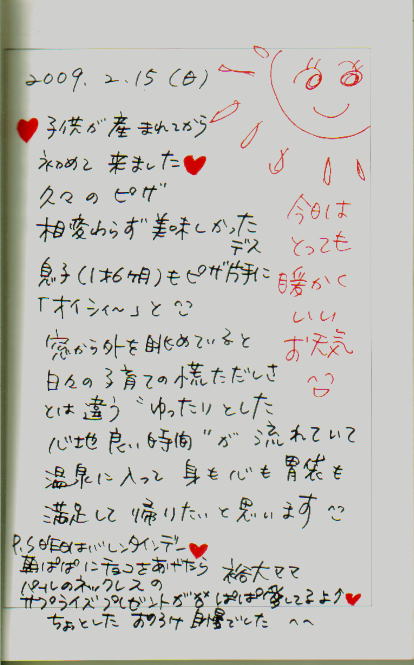 2009. 2. 15 (日)
♥子供が産まれてから
初めて 来ました♥
久々の ピザ
相変わらず 美味しかった
デス
息子(1才6ヶ月)もピザ片手に
「オイシィ〜」と
窓から外を眺めていると
日々の子育ての慌ただしさ
とは違う "ゆったりとした
心地良い時間" が 流れていて
温泉に入って 身も心も 胃袋も
満足して 帰りたいと思います
今日は
とっても
暖かく
いい
お天気
P.S 昨日はバレンタインデー♥
ぱぱにチョコをあげたら
パールのネックレスの
サプライズプレゼントが ぱぱ愛してるよ♥
裕大ママ
ちょっとした おのろけ 自慢でした ^^